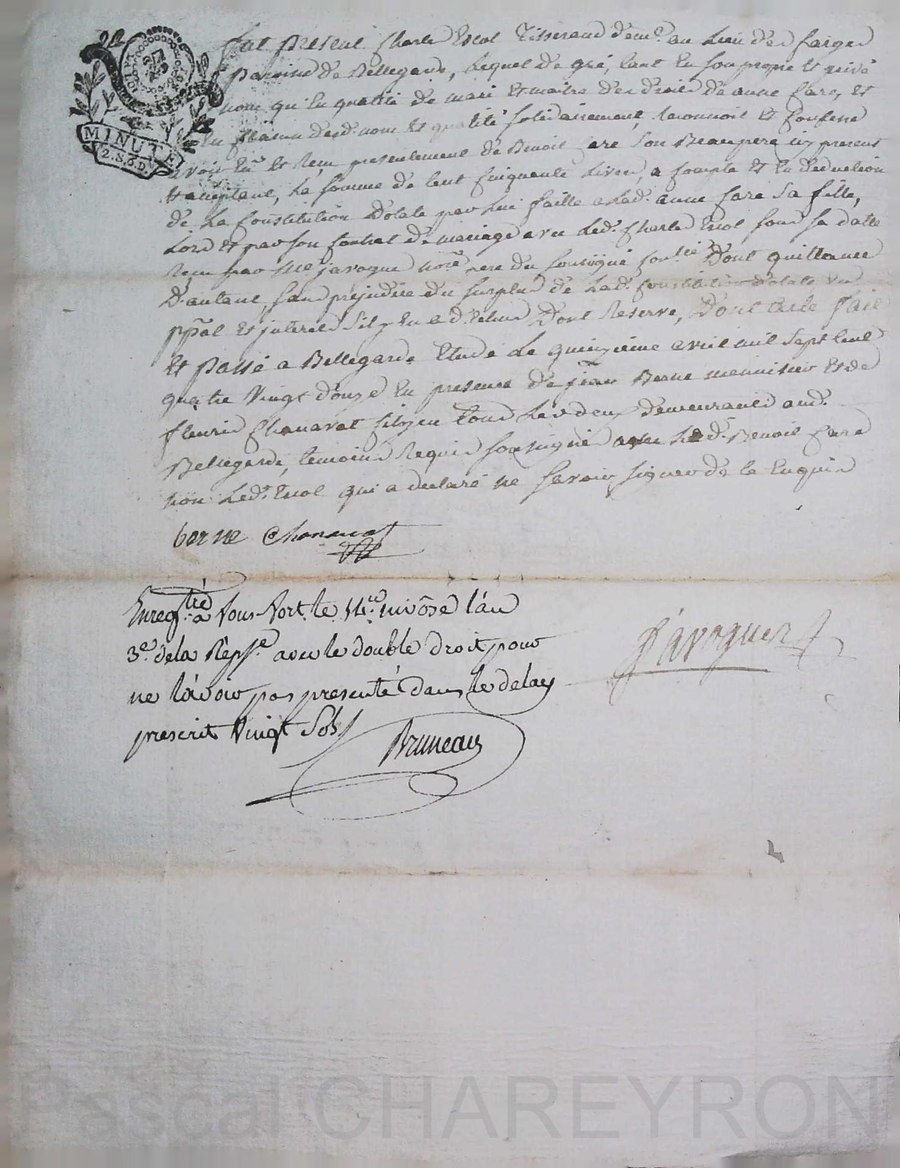 MINUTE
2. S. 6 D.
fut present Charle Escot Tisserand dem.t au Lieu des farges
paroisse de Bellegarde, Lequel de gré, tant en son propre et privé
nom qu'en qualité de mari et maitre des droits de anne fare, et
nom et qualité solidairement, Reconnoit et Confesse
avoir Eu et Reçu presentement de Benoit fare Son Beaupere icy present
et acceptant, La somme de Cent Cinquante Livres, a Compte et en Deduction
de La Constitution Dotale par Lui faitte a Lad. anne fare Sa fille,
Lors et par son Contrat de mariage avec Led. Charle Escot sous sa datte
Reçu par Me javogue pere du soussigné Dont quittance
D'autant, sans prejudice du surplus de Lad. Constitution Dotale en
ppal et interet S'il y en a D'Echus Dont Reserve, Dont acte fait
et passé a Bellegarde Etude Le quinzieme avril mil sept cent
quatre vingt douze En presence de jean Berne menuisier et de
fleuri Chanavat Citoyen tous Les deux demeurants aud.
Bellegarde, temoins Requis soussignés avec Led. Benoit fare
non Led. Escot qui a declaré ne savoir signer de ce Enquis
berne Chanavat
Enregtré a Mont le 14e. nivôse l'an
3e. de la Rep.e avec le double droit pour
ne l'avoir pas presenté dans le delay
prescrit Vingt Sols
Javogues
Bruneau
Pascal CHAREYRON